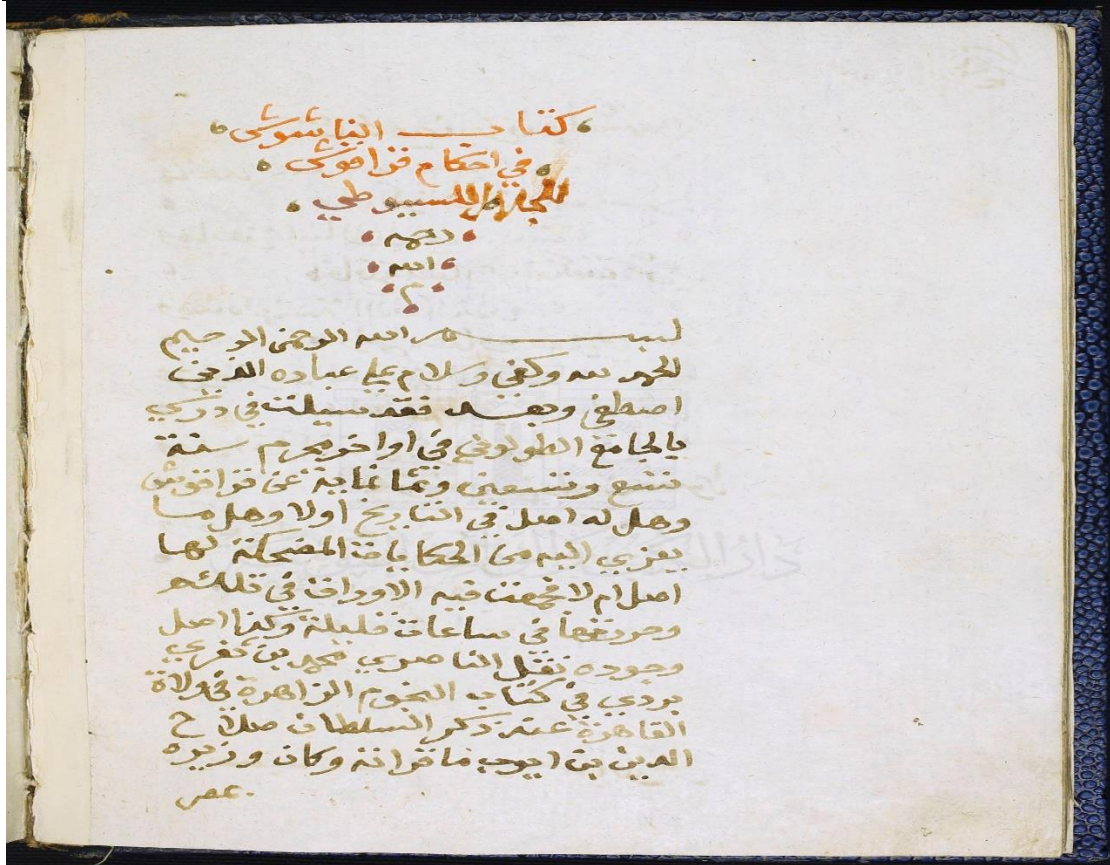 كتاب الفاشوشى
في احكام قراقوش
للسيوطي
رحمه
الله
م
بسم الله الرحمن الرحيم
الحمد لله وكفى وسلام على عباده الذين
اصطفى وبعد فقد سيلت في درسي
بالجامع الطولوني في اواخر محرم سنة
تسع وتسعين وثمانماية عن قراقوش
وهل له اصل في التاريخ اولا وهل ما
يعزي اليه من الحكايات المضحكة لها
اصل ام لا فجمعت فيه الاوراق في
في ساعات قليلة اصل
وجوده نقل الناصري محمد بن تغري
بردي في كتاب النجوم الزاهرة في ولاة
القاهرة عند ذكر السلطان صلاح
الدين بن ايوب وكان وزيره